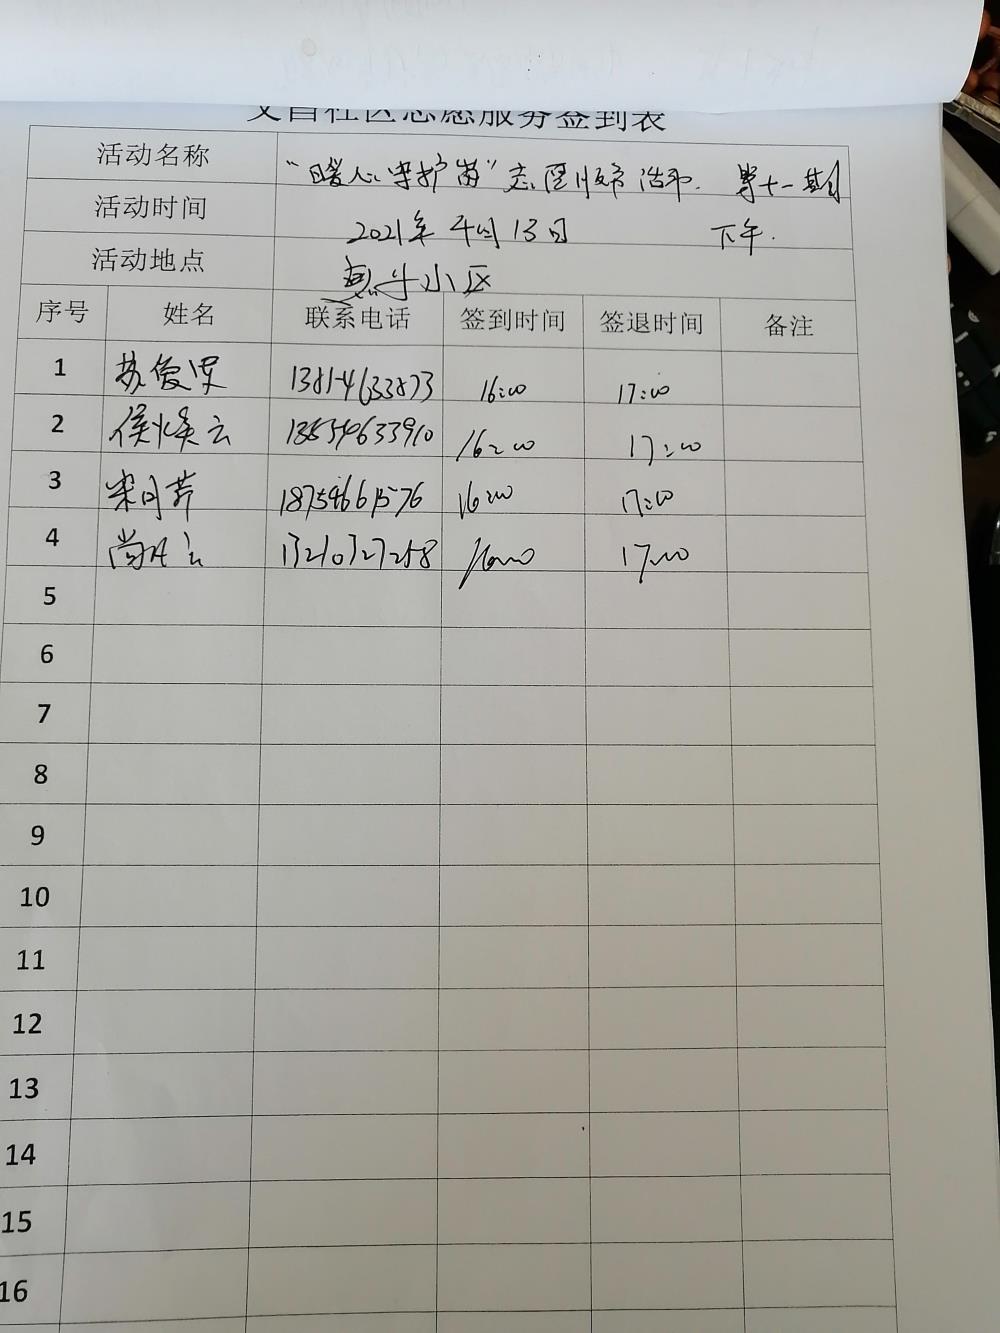 文昌社区志愿服务签到表
活动名称 “暖人心守护岗”志愿服务活动. 第十一期
活动时间 2021年4月13日 下午.
活动地点 惠生小区
序号 姓名 联系电话 签到时间 签退时间 备注
1 苏俊 13814633873 16:00 17:00
2 侯焕云 16:00 17:00
3 宋月芹 18754661576 16:00 17:00
4 尚 云 13210327258 16:00 17:00
5
6
7
8
9
10
11
12
13
14
15
16